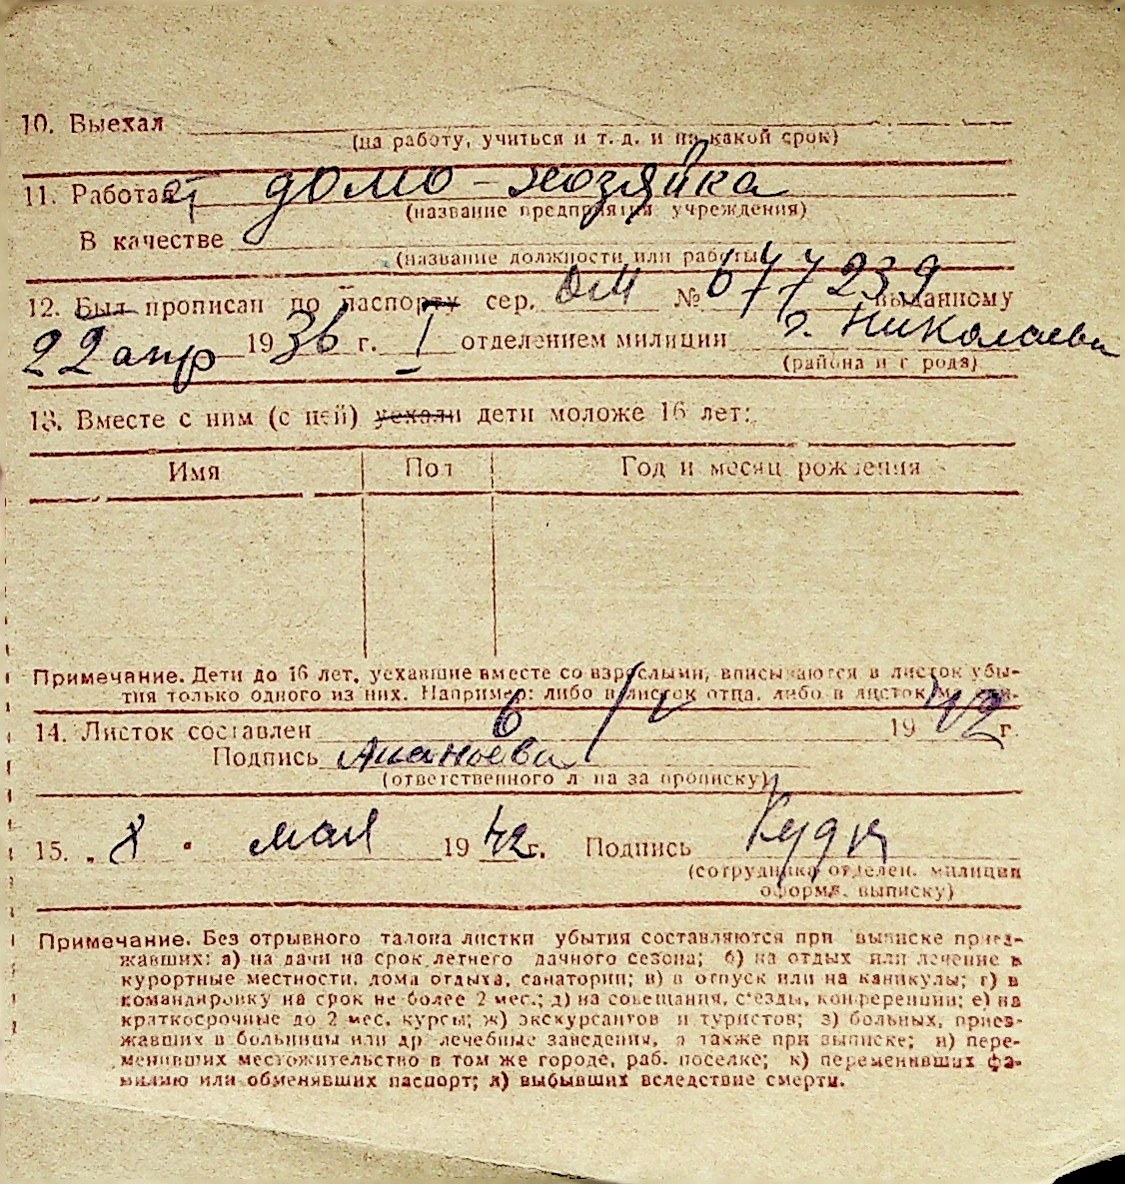 10. Выехал
(на работу, учиться и т. д. и на какой срок)
11. Работает домо-хозяйка
(название предприятия, учреждения)
В качестве
(название должности или работы)
12. Был прописан по паспорту сер. № 677239 выданному
22 апр 1936 г. I отделением милиции г. Николаева
(района и города)
13. Вместе с ним (с ней) уехали дети моложе 16 лет:
Имя Пол Год и месяц рождения
Примечание. Дети до 16 лет, уехавшие вместе со взрослыми, вписываются в листок убы-
тия только одного из них. Например: либо в листок отца, либо в листок матери.
14. Листок составлен 6/V 1942 г.
Подпись Ананьева
(ответственного лица за прописку)
15. „8" мая 1942 г. Подпись
(сотрудника отделен. милиции
оформл. выписку)
Примечание. Без отрывного талона листки убытия составляются при выписке приез-
жавших: а) на дачи на срок летнего дачного сезона; б) на отдых или лечение в
курортные местности, дома отдыха, санатории; в) в отпуск или на каникулы; г) в
командировку на срок не более 2 мес.; д) на совещания, с'езды, конференции; е) на
краткосрочные до 2 мес. курсы; ж) экскурсантов и туристов; з) больных, приез-
жавших в больницы или др лечебные заведения, а также при выписке; и) пере-
менивших местожительство в том же городе, раб. поселке; к) переменивших фа-
милию или обменявших паспорт; л) выбывших вследствие смерти.